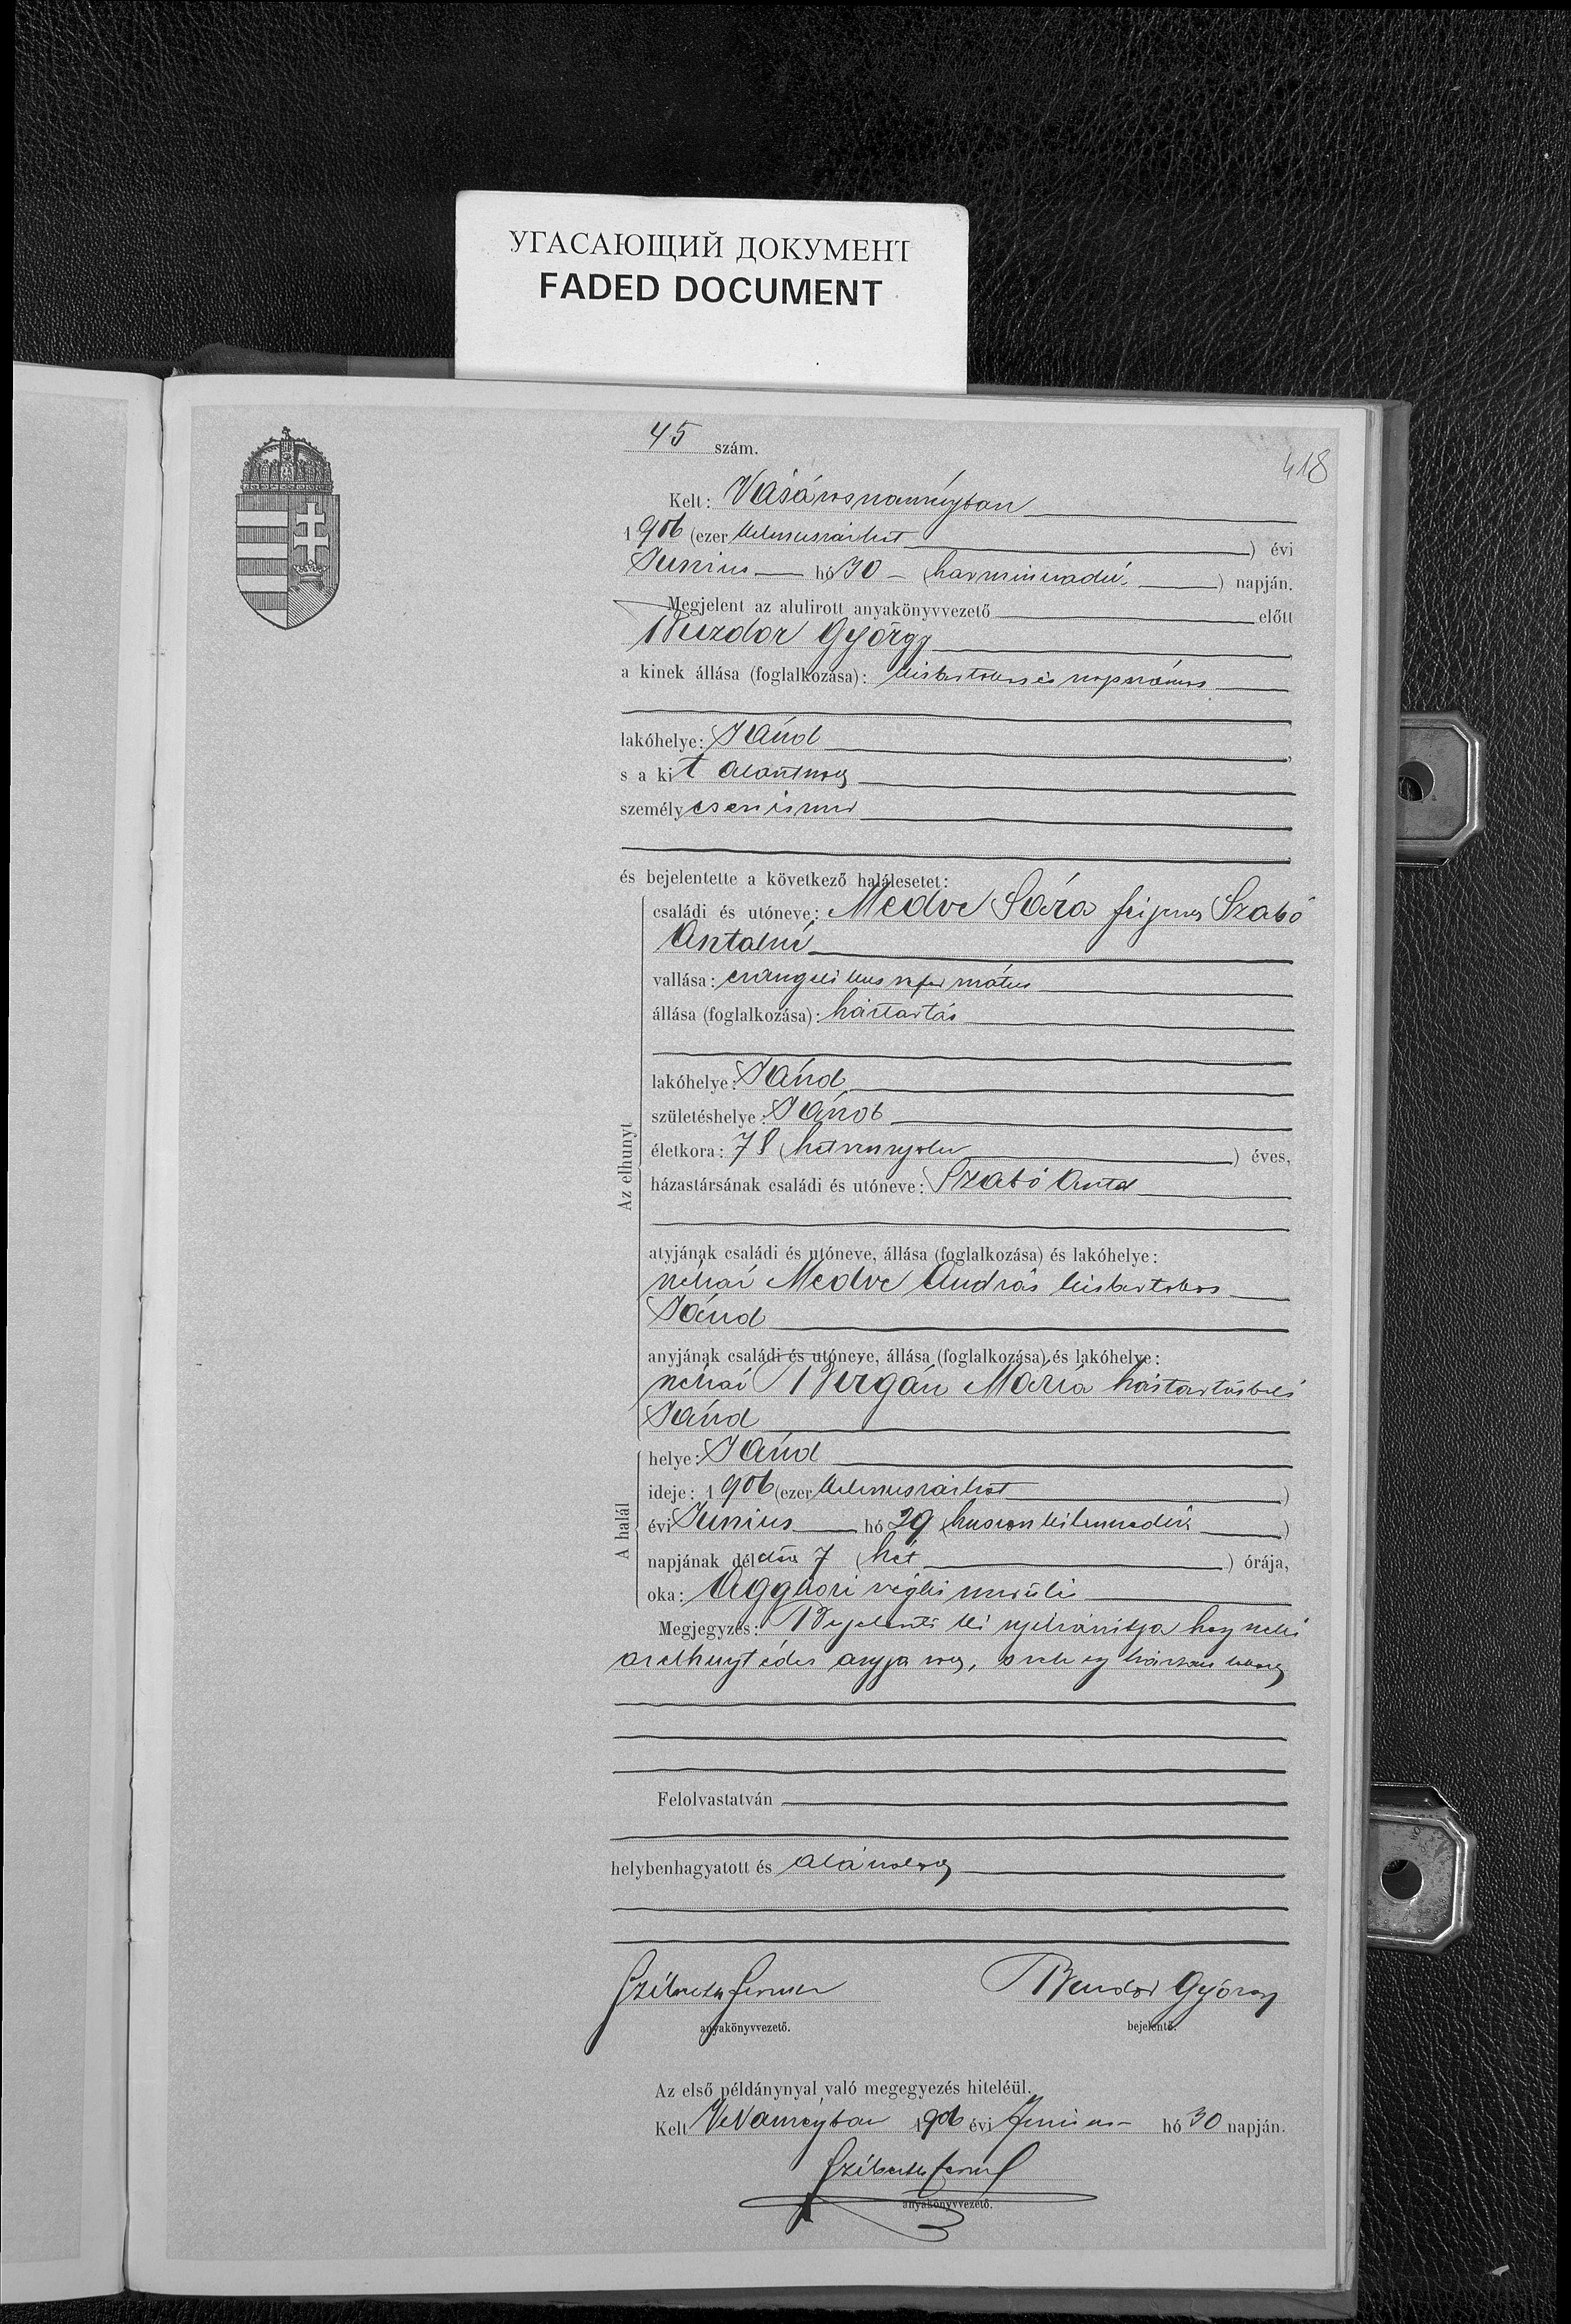 УГАСАЮЩИЙ ДОКУМЕНТ
FADED DOCUMENT
45 szám.
418
Kelt: Vásárosnaményban
1906 (ezer kilenczszázhat ) évi
Junius hó 30 (harminczadik ) napján.
Megjelent az alulirott anyakönyvvezető előtt
György
a kinek állása (foglalkozása): kisbirtokos és napszámos
lakóhelye: Jánd
s a kit alantirott
személyesen ismer
és bejelentette a következő halálesetet:
családi és utóneve: Medve Sára férjezett Szabó
Antalné
vallása: evangelikus református
állása (foglalkozása): háztartás
lakóhelye: Jánd
születéshelye: Jánd
életkora: 78 (hetvennyolcz ) éves,
házastársának családi és utóneve: Szabó Antal
atyjának családi és utóneve, állása (foglalkozása) és lakóhelye:
néhai Medve András kisbirtokos
Jánd
anyjának családi és utóneve, állása (foglalkozása) és lakóhelye:
néhai Mária háztartásbeli
Jánd
Az elhunyt
helye: Jánd
ideje: 1906 (ezer kilenczszázhat )
évi Junius hó 29 (huszonkilenczedik )
napjának délelőtt 7 (hét ) órája,
oka: Aggkori végkimerülés
A halál
Megjegyzés: Bejelentő kinyilvánitja hogy neki
az elhunyt édes anyja volt, s vele egy házban lakott
Felolvastatván
helybenhagyatott és aláiratott
anyakönyvvezető.
György
bejelentő.
Az első példánynyal való megegyezés hiteléül.
Kelt V.Naményban 1906 évi Junius hó 30 napján.
anyakönyvvezető.